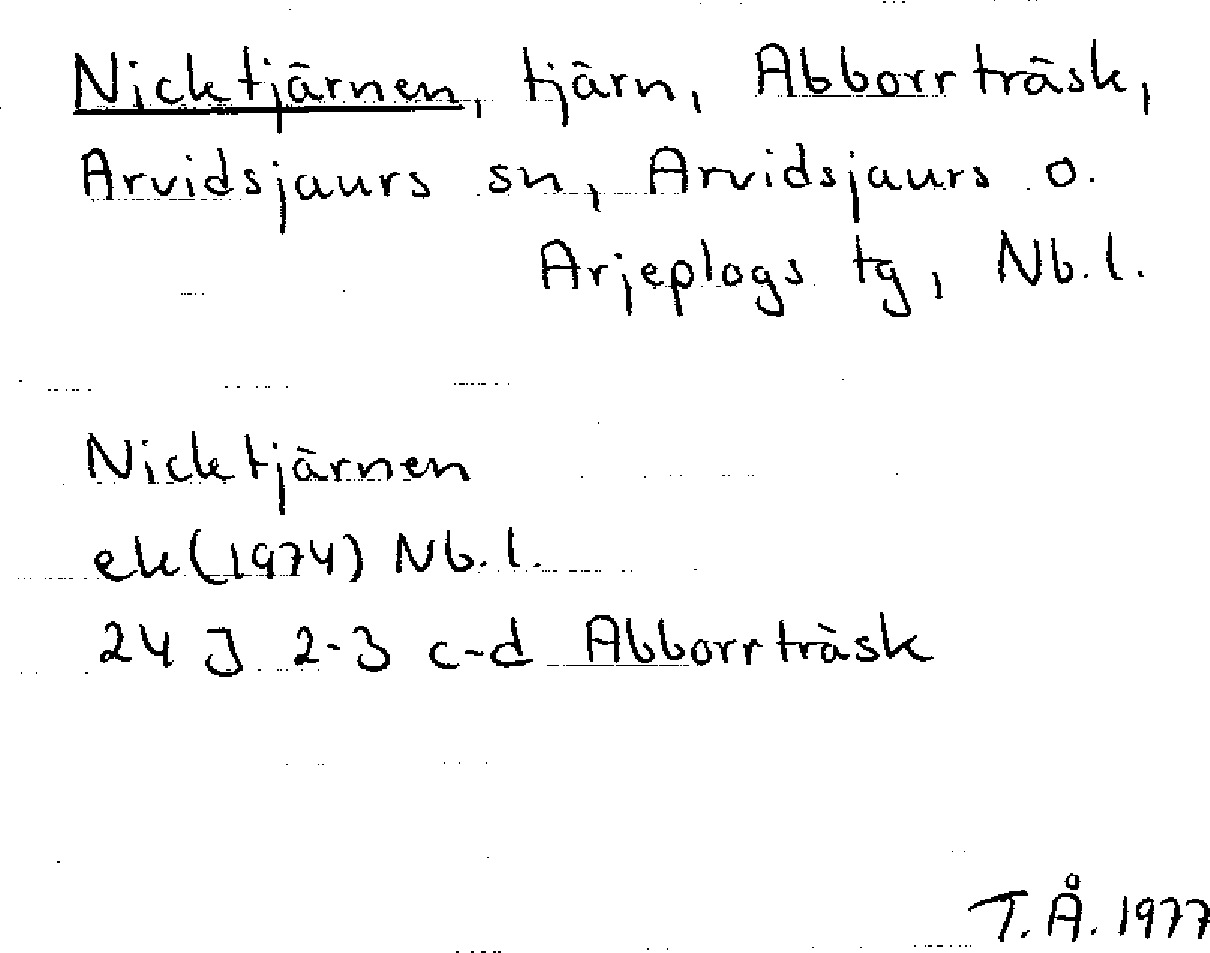 Nicktjärnen, tjärn, Abborrträsk,
Arvidsjaurs sn, Arvidsjaurs o.
Arjeplogs tg, Nb.l.
Nicktjärnen
ek(1974) Nb.l.
24 J 2-3 c-d Abborrträsk
T.Å. 1977